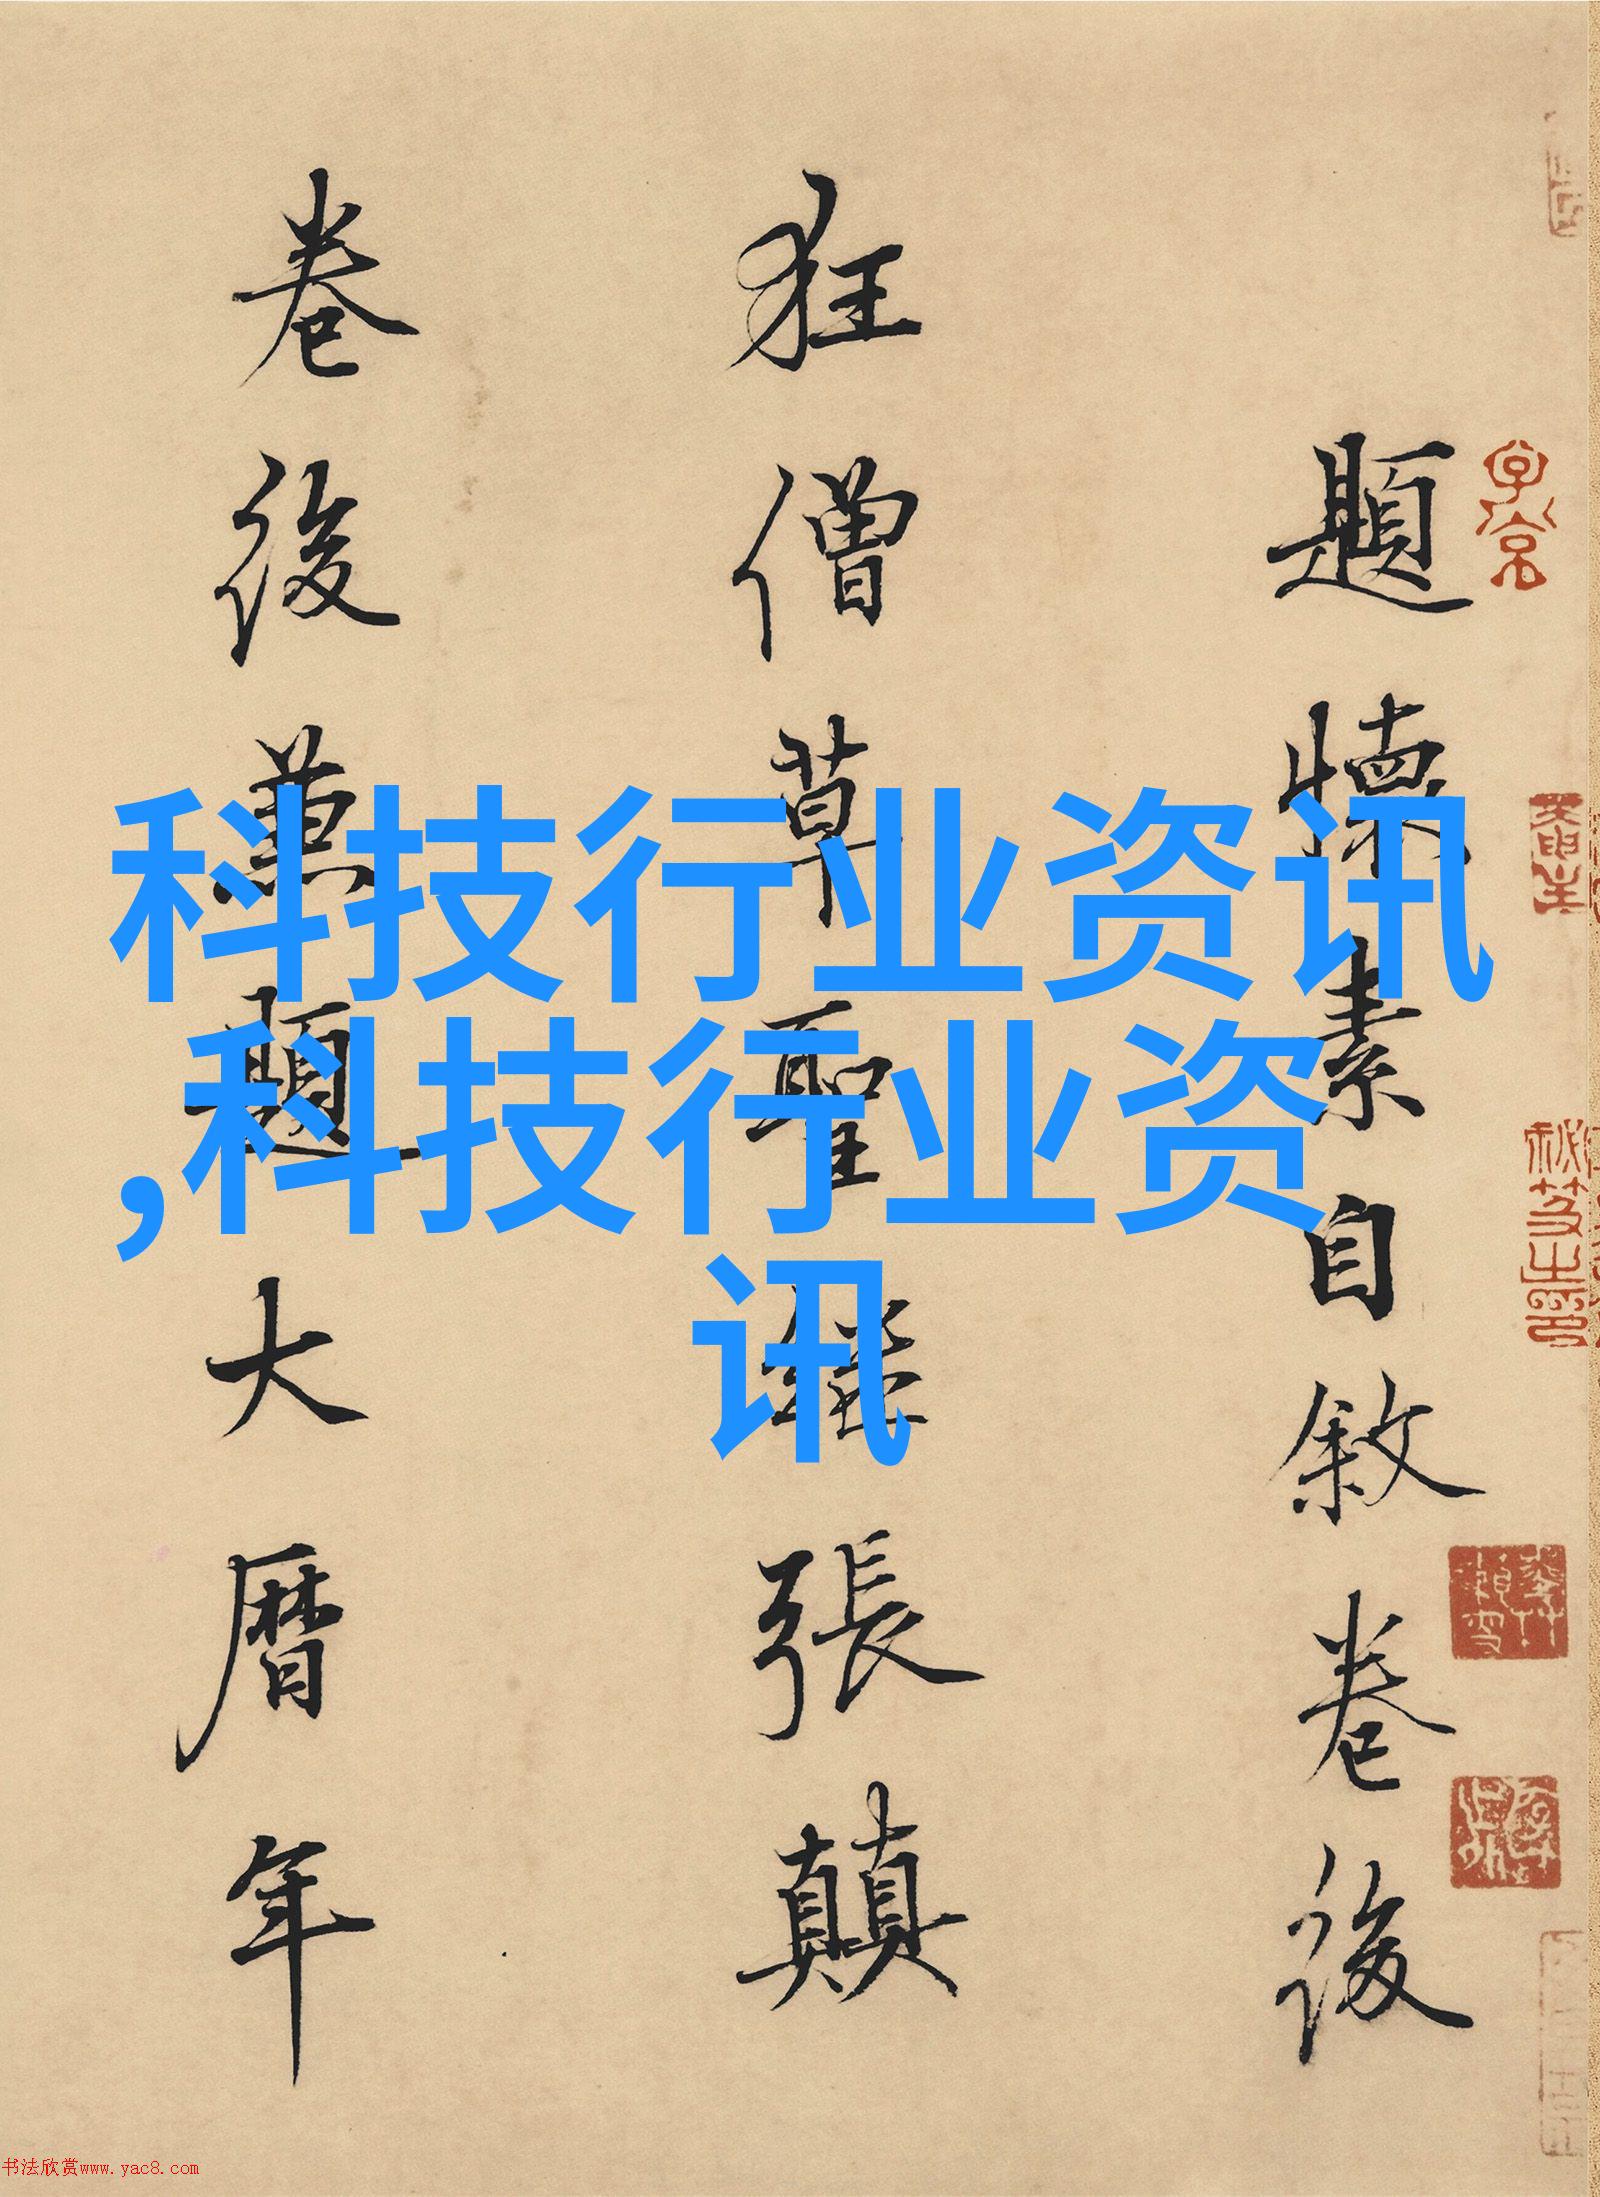 題懷素自敘卷後
狂僧草聖繼張顛
卷後兼題大曆年
科技行业资讯
,科技行业资
讯
书法欣赏www.yac8.com